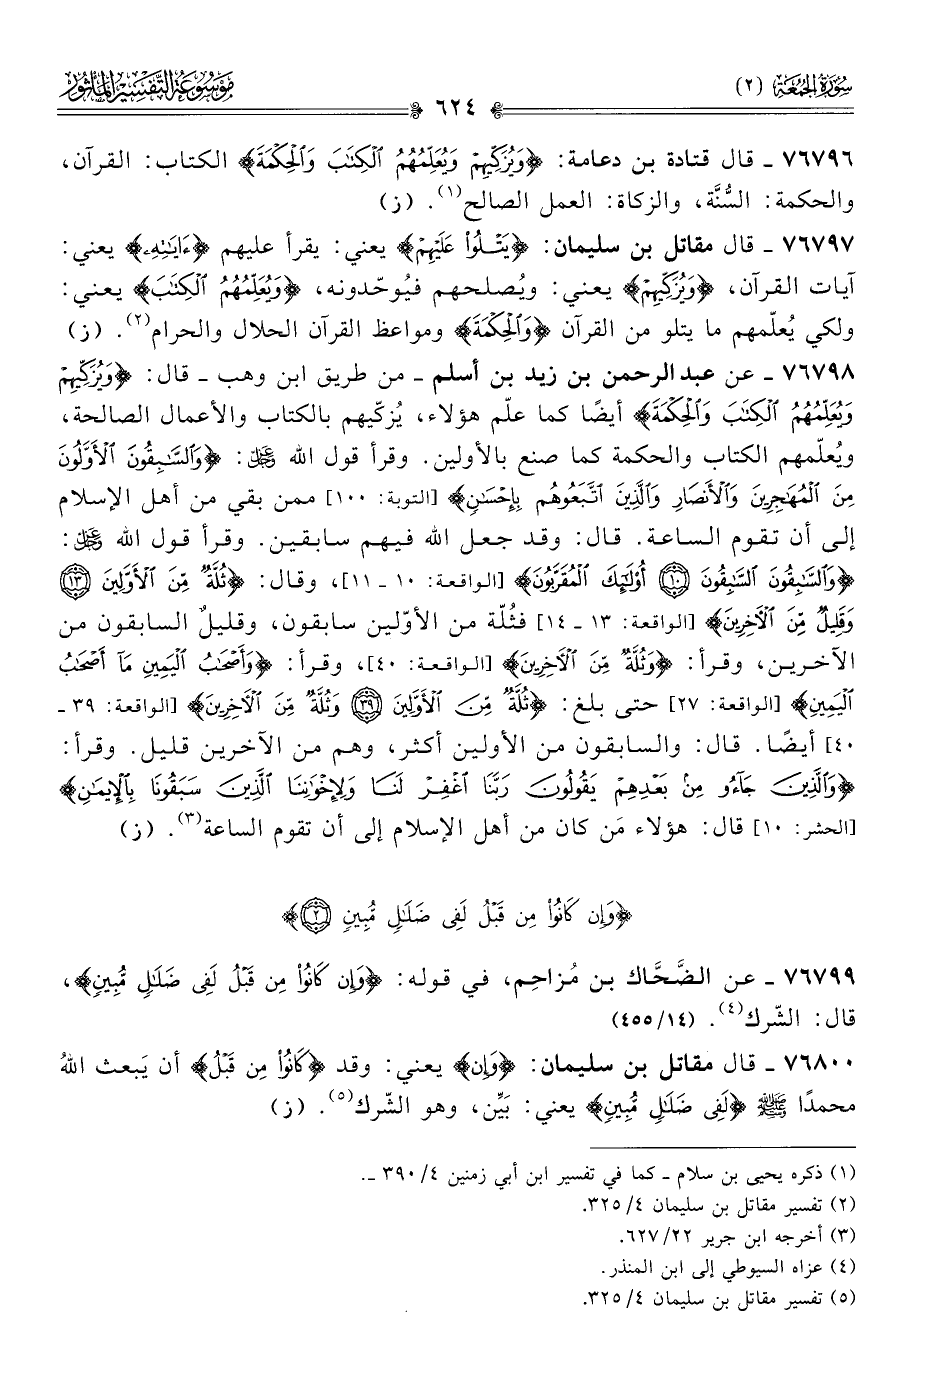 سُورَةُ الجُمُعَةِ (٢)
٦٢٤
مَوْسُوعَةُ التَّفْسِيرِ المَأْثُور
٧٦٧٩٦ ـ قال قتادة بن دعامة: ﴿وَيُزَكِّيهِمْ وَيُعَلِّمُهُمُ ٱلْكِتَٰبَ وَٱلْحِكْمَةَ﴾ الكتاب: القرآن،
والحكمة: السُّنَّة، والزكاة: العمل الصالح(١). (ز)
٧٦٧٩٧ ـ قال مقاتل بن سليمان: ﴿يَتْلُوا۟ عَلَيْهِمْ﴾ يعني: يقرأ عليهم ﴿ءَايَٰتِهِۦ﴾ يعني:
آيات القرآن، ﴿وَيُزَكِّيهِمْ﴾ يعني: ويُصلحهم فيُوحّدونه، ﴿وَيُعَلِّمُهُمُ ٱلْكِتَٰبَ﴾ يعني:
ولكي يُعلّمهم ما يتلو من القرآن ﴿وَٱلْحِكْمَةَ﴾ ومواعظ القرآن الحلال والحرام(٢). (ز)
٧٦٧٩٨ ـ عن عبد الرحمن بن زيد بن أسلم ـ من طريق ابن وهب ـ قال: ﴿وَيُزَكِّيهِمْ
وَيُعَلِّمُهُمُ ٱلْكِتَٰبَ وَٱلْحِكْمَةَ﴾ أيضًا كما علّم هؤلاء، يُزكّيهم بالكتاب والأعمال الصالحة،
ويُعلّمهم الكتاب والحكمة كما صنع بالأولين. وقرأ قول الله عَزَّوَجَلَّ: ﴿وَٱلسَّٰبِقُونَ ٱلْأَوَّلُونَ
مِنَ ٱلْمُهَٰجِرِينَ وَٱلْأَنصَارِ وَٱلَّذِينَ ٱتَّبَعُوهُم بِإِحْسَٰنٍ﴾ [التوبة: ١٠٠] ممن بقي من أهل الإسلام
إلى أن تقوم الساعة. قال: وقد جعل الله فيهم سابقين. وقرأ قول الله عَزَّوَجَلَّ:
﴿وَٱلسَّٰبِقُونَ ٱلسَّٰبِقُونَ ۝١٠ أُو۟لَٰٓئِكَ ٱلْمُقَرَّبُونَ﴾ [الواقعة: ١٠ ـ ١١]، وقال: ﴿ثُلَّةٌ مِّنَ ٱلْأَوَّلِينَ ۝١٣
وَقَلِيلٌ مِّنَ ٱلْأَخِرِينَ﴾ [الواقعة: ١٣ ـ ١٤] فثُلّة من الأوّلين سابقون، وقليلٌ السابقون من
الآخرين، وقرأ: ﴿وَثُلَّةٌ مِّنَ ٱلْأَخِرِينَ﴾ [الواقعة: ٤٠]، وقرأ: ﴿وَأَصْحَٰبُ ٱلْيَمِينِ مَآ أَصْحَٰبُ
ٱلْيَمِينِ﴾ [الواقعة: ٢٧] حتى بلغ: ﴿ثُلَّةٌ مِّنَ ٱلْأَوَّلِينَ ۝٣٩ وَثُلَّةٌ مِّنَ ٱلْأَخِرِينَ﴾ [الواقعة: ٣٩ ـ
٤٠] أيضًا. قال: والسابقون من الأولين أكثر، وهم من الآخرين قليل. وقرأ:
﴿وَٱلَّذِينَ جَآءُو مِنۢ بَعْدِهِمْ يَقُولُونَ رَبَّنَا ٱغْفِرْ لَنَا وَلِإِخْوَٰنِنَا ٱلَّذِينَ سَبَقُونَا بِٱلْإِيمَٰنِ﴾
[الحشر: ١٠] قال: هؤلاء مَن كان من أهل الإسلام إلى أن تقوم الساعة(٣). (ز)
﴿وَإِن كَانُوا۟ مِن قَبْلُ لَفِى ضَلَٰلٍ مُّبِينٍ ۝٢﴾
٧٦٧٩٩ ـ عن الضَّحَّاك بن مُزاحِم، في قوله: ﴿وَإِن كَانُوا۟ مِن قَبْلُ لَفِى ضَلَٰلٍ مُّبِينٍ﴾،
قال: الشّرك(٤). (١٤/ ٤٥٥)
٧٦٨٠٠ ـ قال مقاتل بن سليمان: ﴿وَإِن﴾ يعني: وقد ﴿كَانُوا۟ مِن قَبْلُ﴾ أن يَبعث اللهُ
محمدًا ﷺ ﴿لَفِى ضَلَٰلٍ مُّبِينٍ﴾ يعني: بَيِّن، وهو الشّرك(٥). (ز)
(١) ذكره يحيى بن سلام ـ كما في تفسير ابن أبي زمنين ٤/ ٣٩٠ ـ.
(٢) تفسير مقاتل بن سليمان ٤/ ٣٢٥.
(٣) أخرجه ابن جرير ٢٢/ ٦٢٧.
(٤) عزاه السيوطي إلى ابن المنذر.
(٥) تفسير مقاتل بن سليمان ٤/ ٣٢٥.